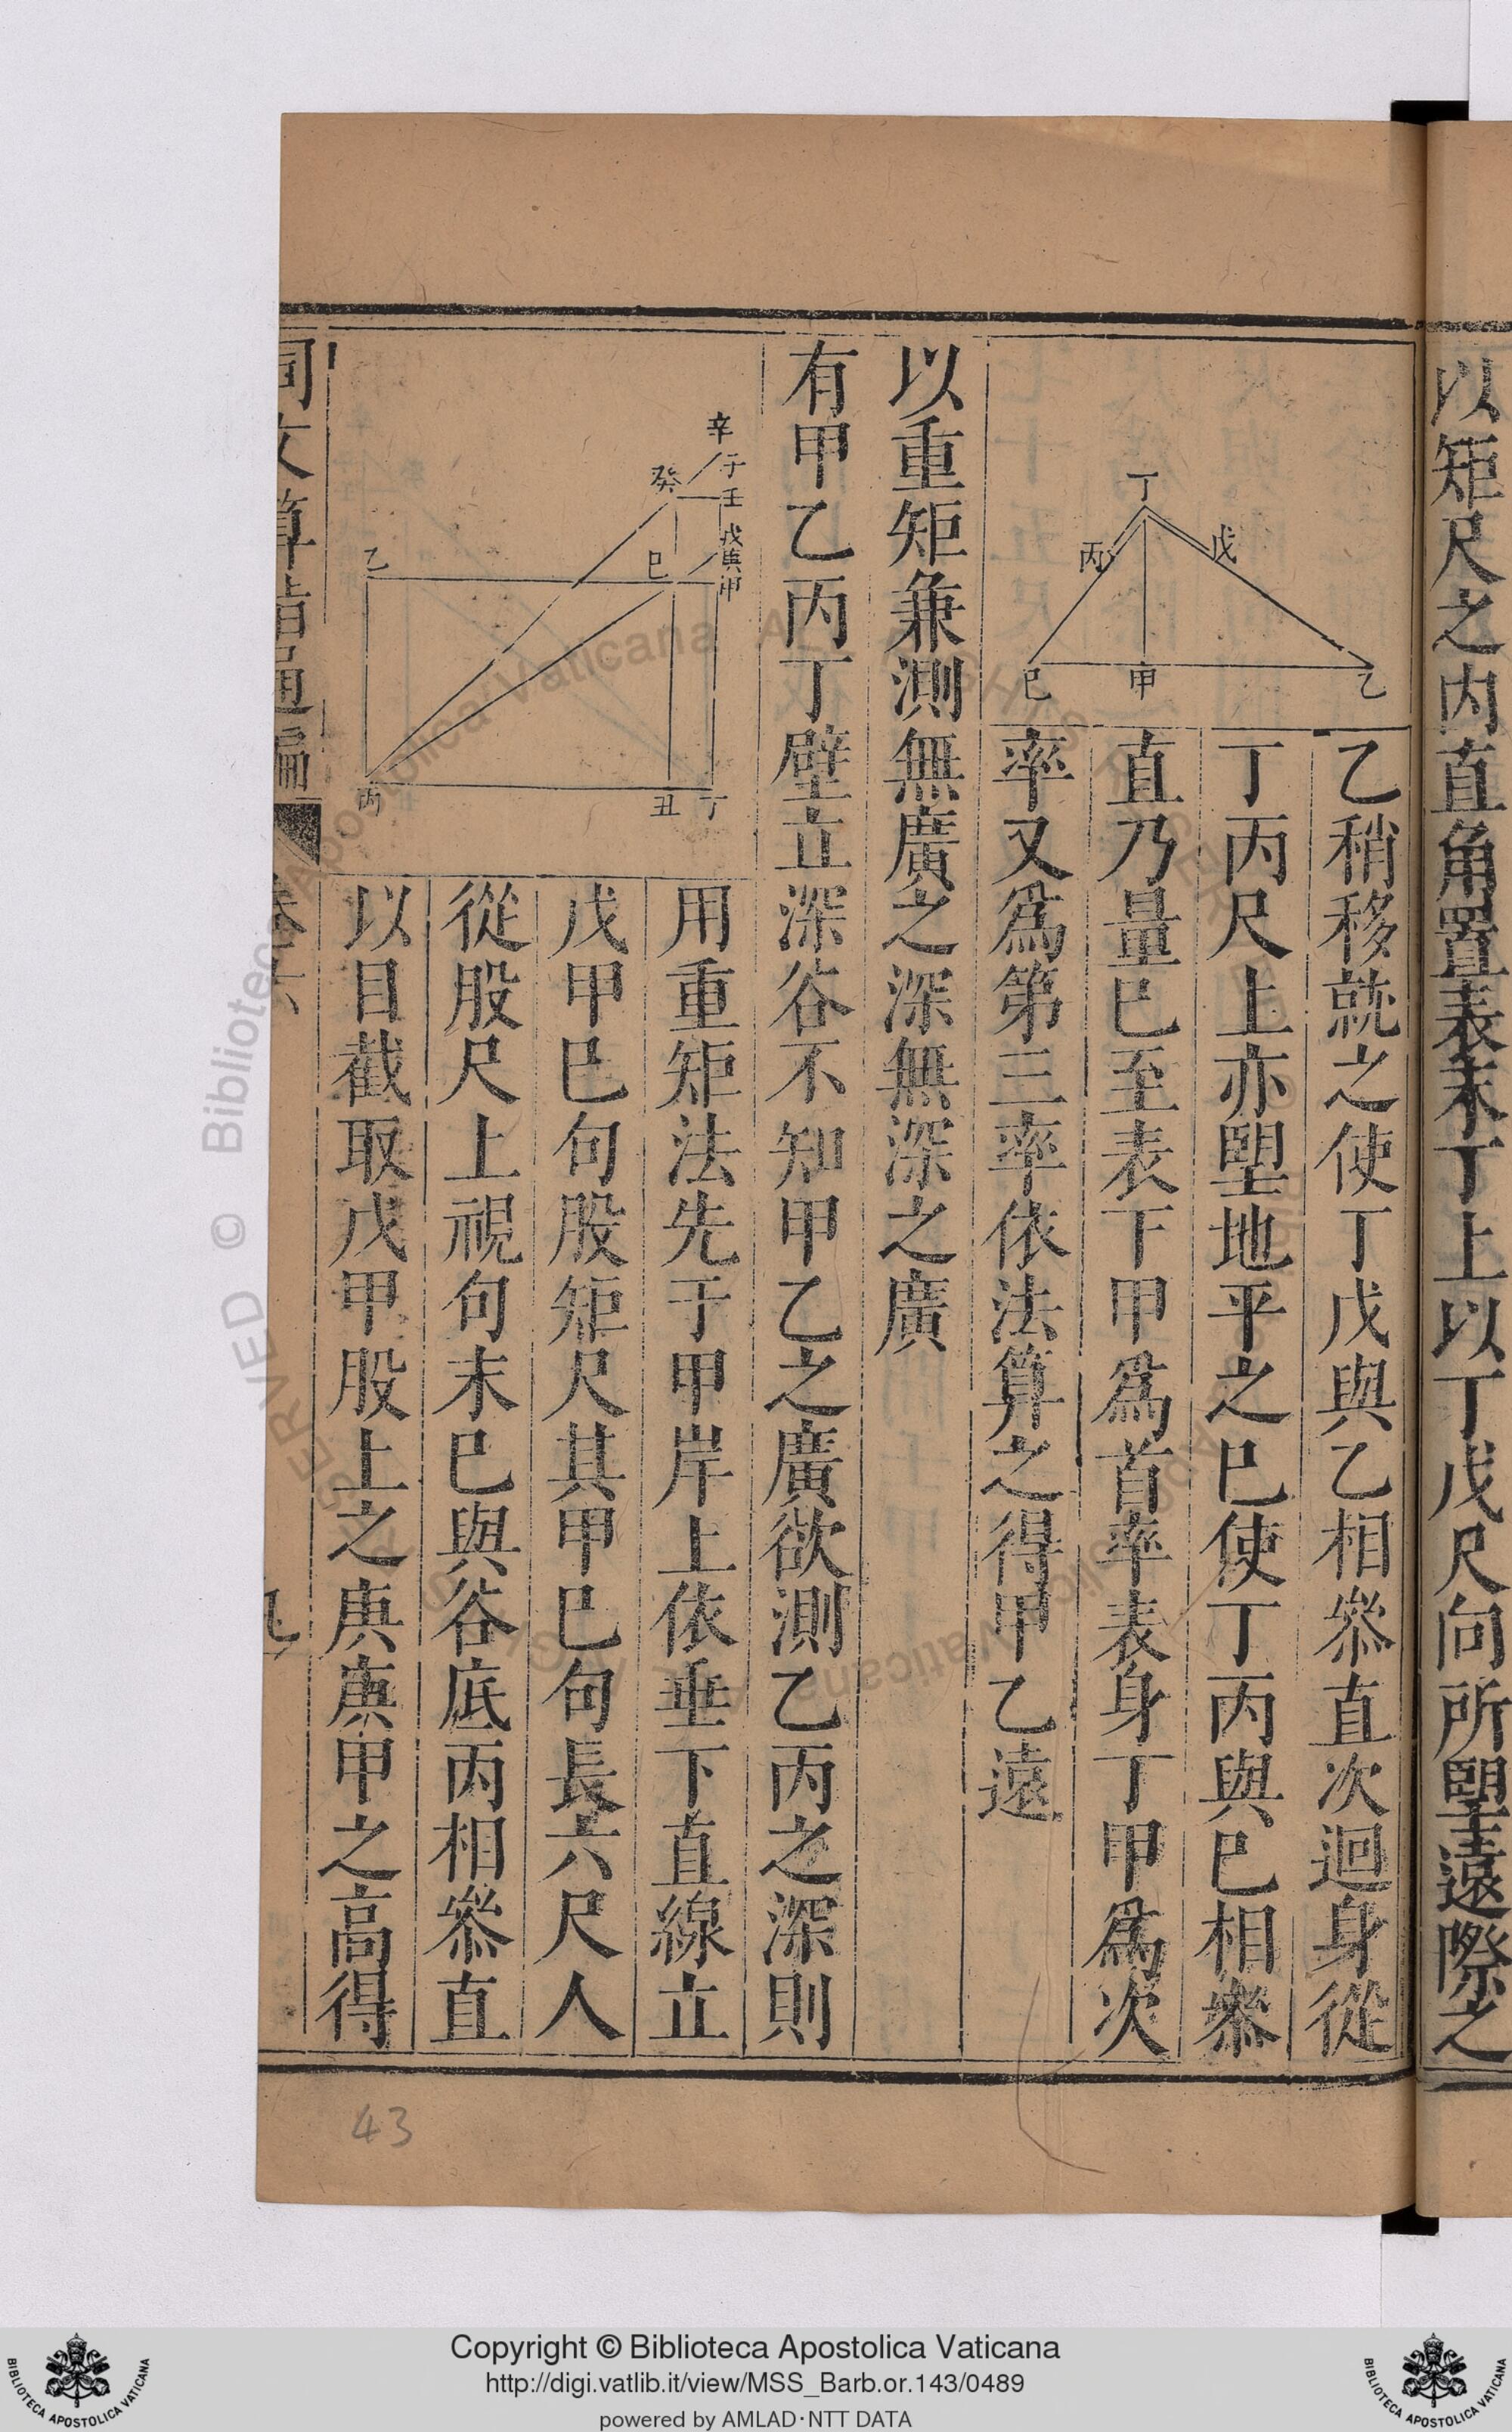 以矩尺之内直角置表末丁上以丁戊尺向所朢遠際之
丁
丙
戊
己
甲
乙
乙稍移就之使丁戊與乙相叅直次迴身從
丁丙尺上亦朢地平之巳使丁丙與巳相叅
直乃量巳至表下甲爲首率表身丁甲爲次
率又爲第三率依法算之得甲乙遠
以重矩兼測無廣之深無深之廣
有甲乙丙丁壁立深谷不知甲乙之廣欲測乙丙之深則
辛
子
壬
癸
戊
庚
甲
巳
乙
丙
丑
丁
用重矩法先于甲岸上依垂下直線立
戊甲巳句股矩尺其甲巳句長六尺人
從股尺上視句末巳與谷底丙相叅直
以目截取戊甲股上之庚庚甲之高得
同文算指通編
卷六
九
43
© Biblioteca Apostolica Vaticana
Copyright © Biblioteca Apostolica Vaticana
http://digi.vatlib.it/view/MSS_Barb.or.143/0489
powered by AMLAD·NTT DATA
BIBLIOTECA APOSTOLICA VATICANA
BIBLIOTECA APOSTOLICA VATICANA